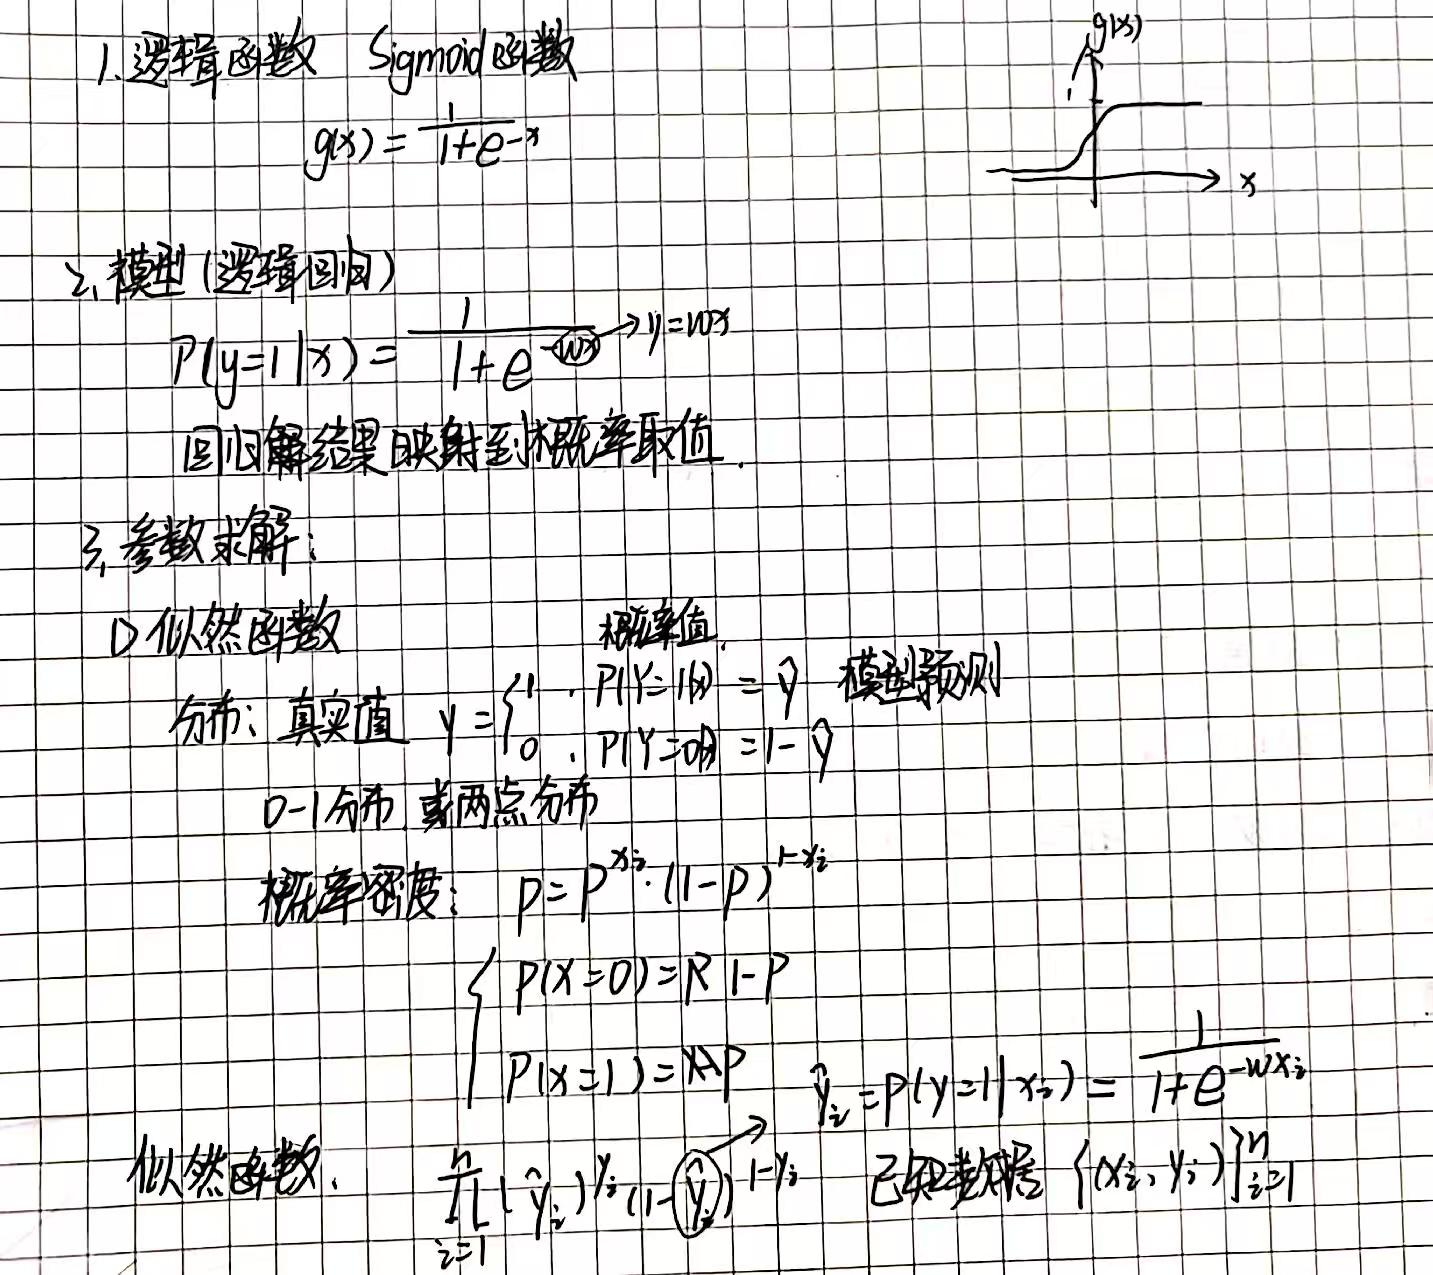 1. 逻辑函数 Sigmoid函数
g(x)
1
g(x) = 1/(1+e^-x)
x
2. 模型(逻辑回归)
P(y=1|x) = 1/(1+e^-wx) → y=wx
回归解结果映射到概率取值.
3. 参数求解:
1) 似然函数 概率值.
分布: 真实值 y = { 1 . P(Y=1|x) = ŷ 模型预测
0 . P(Y=0|x) = 1-ŷ
0-1分布 或两点分布
概率密度: p = p^xi · (1-p)^1-xi
{ P(X=0) = 1-P
P(X=1) = P
ŷi = P(y=1|xi) = 1/(1+e^-wxi)
似然函数. ∏ i=1 n (ŷi)^yi (1-ŷi)^1-yi 已知数据 {(xi, yi)} n i=1